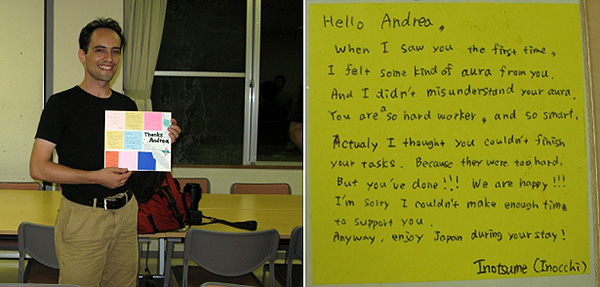 Thanks
Andrea
Hello Andrea,
When I saw you the first time,
I felt some kind of aura from you.
And I didn't misunderstand your aura.
You are a so hard worker, and so smart.
Actualy I thought you couldn't finish
your tasks. Because they were too hard.
But you've done!!! We are happy!!!
I'm sorry I couldn't make enough time
to support you.
Anyway, enjoy Japan during your stay!
Inotsume (Inocchi)